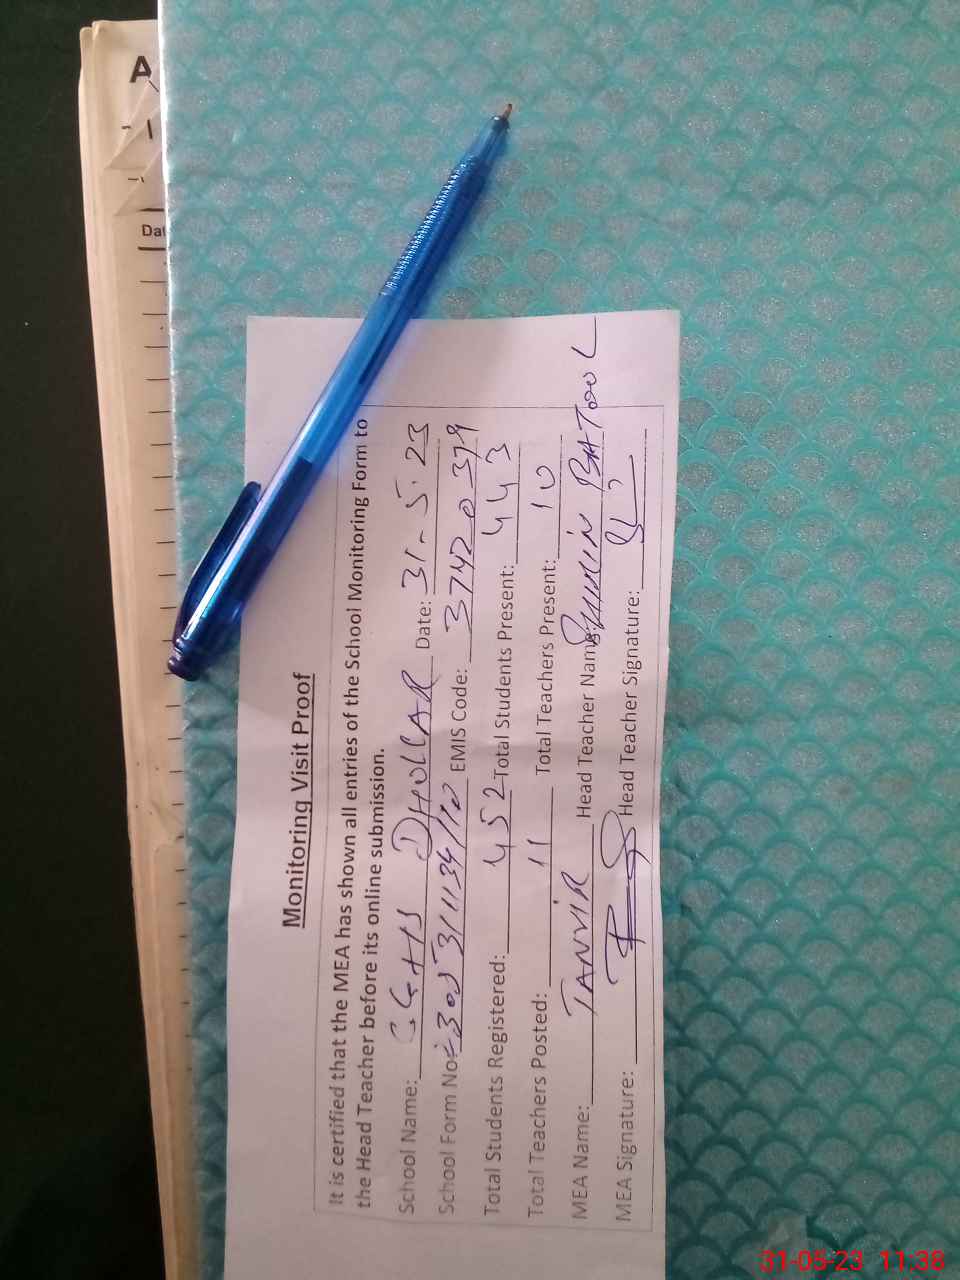 Monitoring Visit Proof
It is certified that the MEA has shown all entries of the School Monitoring Form to
the Head Teacher before its online submission.
School Name: GGHS DHOLLAR Date: 31-5.23
School Form No: EMIS Code: 37420379
Total Students Registered: 452 Total Students Present: 443
Total Teachers Posted: 11 Total Teachers Present: 10
MEA Name: TANVIR Head Teacher Name: BATOOL
MEA Signature: Head Teacher Signature:
A
Dat
31-05-23 11:38